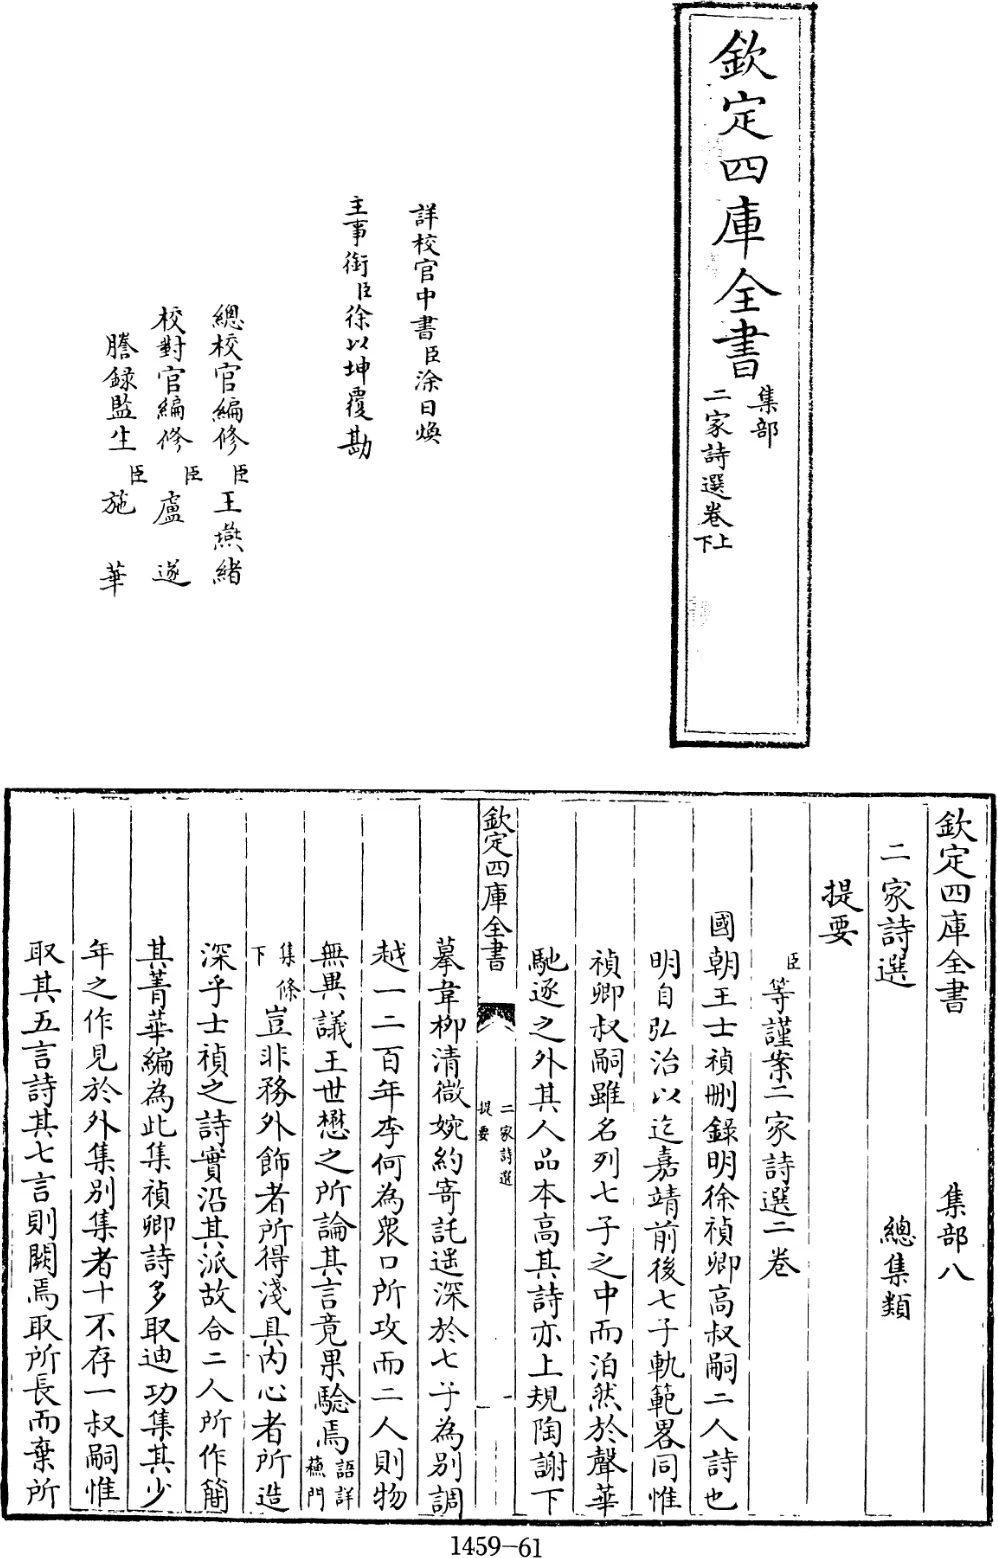 欽定四庫全書
集部
二家詩選卷上下
詳校官中書臣涂日煥
主事銜臣徐以坤覆勘
總校官編修臣王燕緒
校對官編修臣盧遂
謄録監生臣施華
欽定四庫全書 集部八
二家詩選 總集類
提要
臣等謹案二家詩選二卷
國朝王士禎刪錄明徐禎卿高叔嗣二人詩也
明自弘治以迄嘉靖前後七子軌範畧同惟
禎卿叔嗣雖名列七子之中而泊然於聲華
馳逐之外其人品本高其詩亦上規陶謝下
欽定四庫全書
二家詩選
提要
一
摹韋柳清微婉約寄託遥深於七子為別調
越一二百年李何為衆口所攻而二人則物
無異議王世懋之所論其言竟果驗焉語詳蘓門
集條下豈非務外飾者所得淺具内心者所造
深乎士禎之詩實沿其派故合二人所作簡
其菁華編為此集禎卿詩多取迪功集其少
年之作見於外集別集者十不存一叔嗣惟
取其五言詩其七言則闕焉取所長而棄所
1459-61